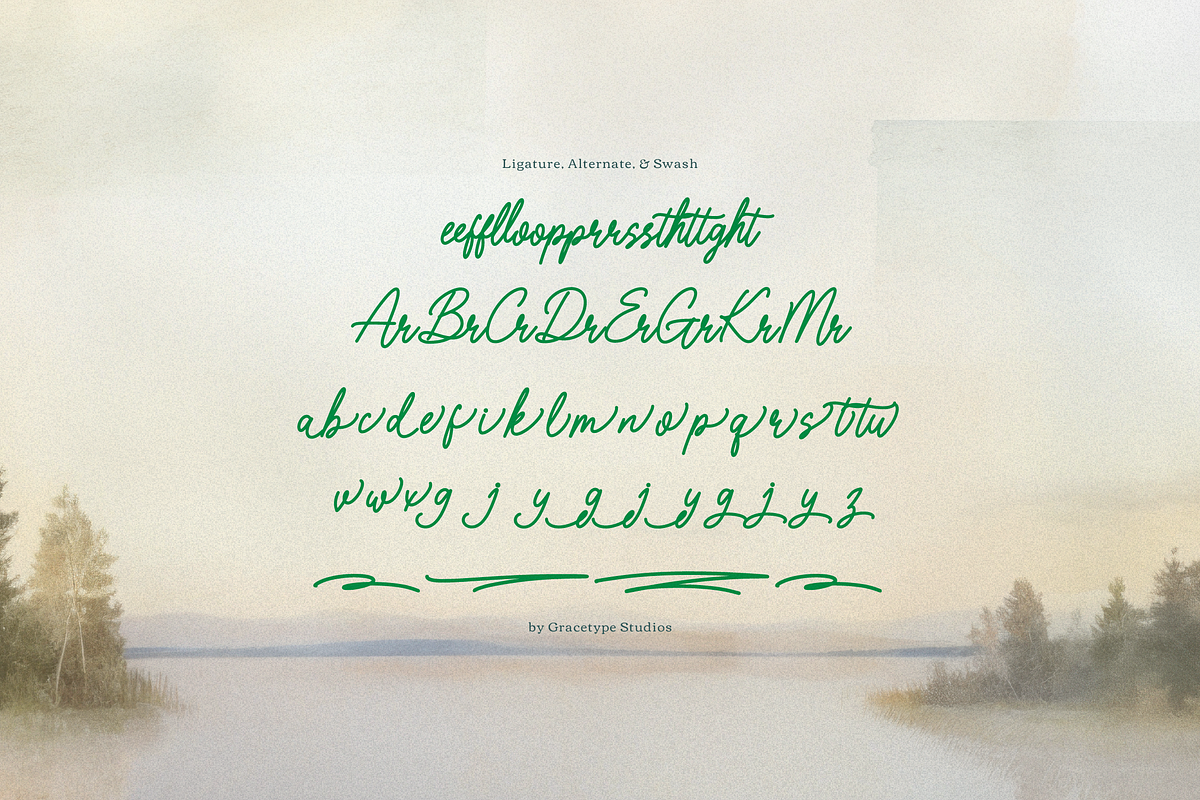 Ligature, Alternate, & Swash
eeffllooopprrssthttght
ArBrCrDrErGrKrMr
abcdefiklmnopqrsttu
vwxgjygjygjyz
by Gracetype Studios